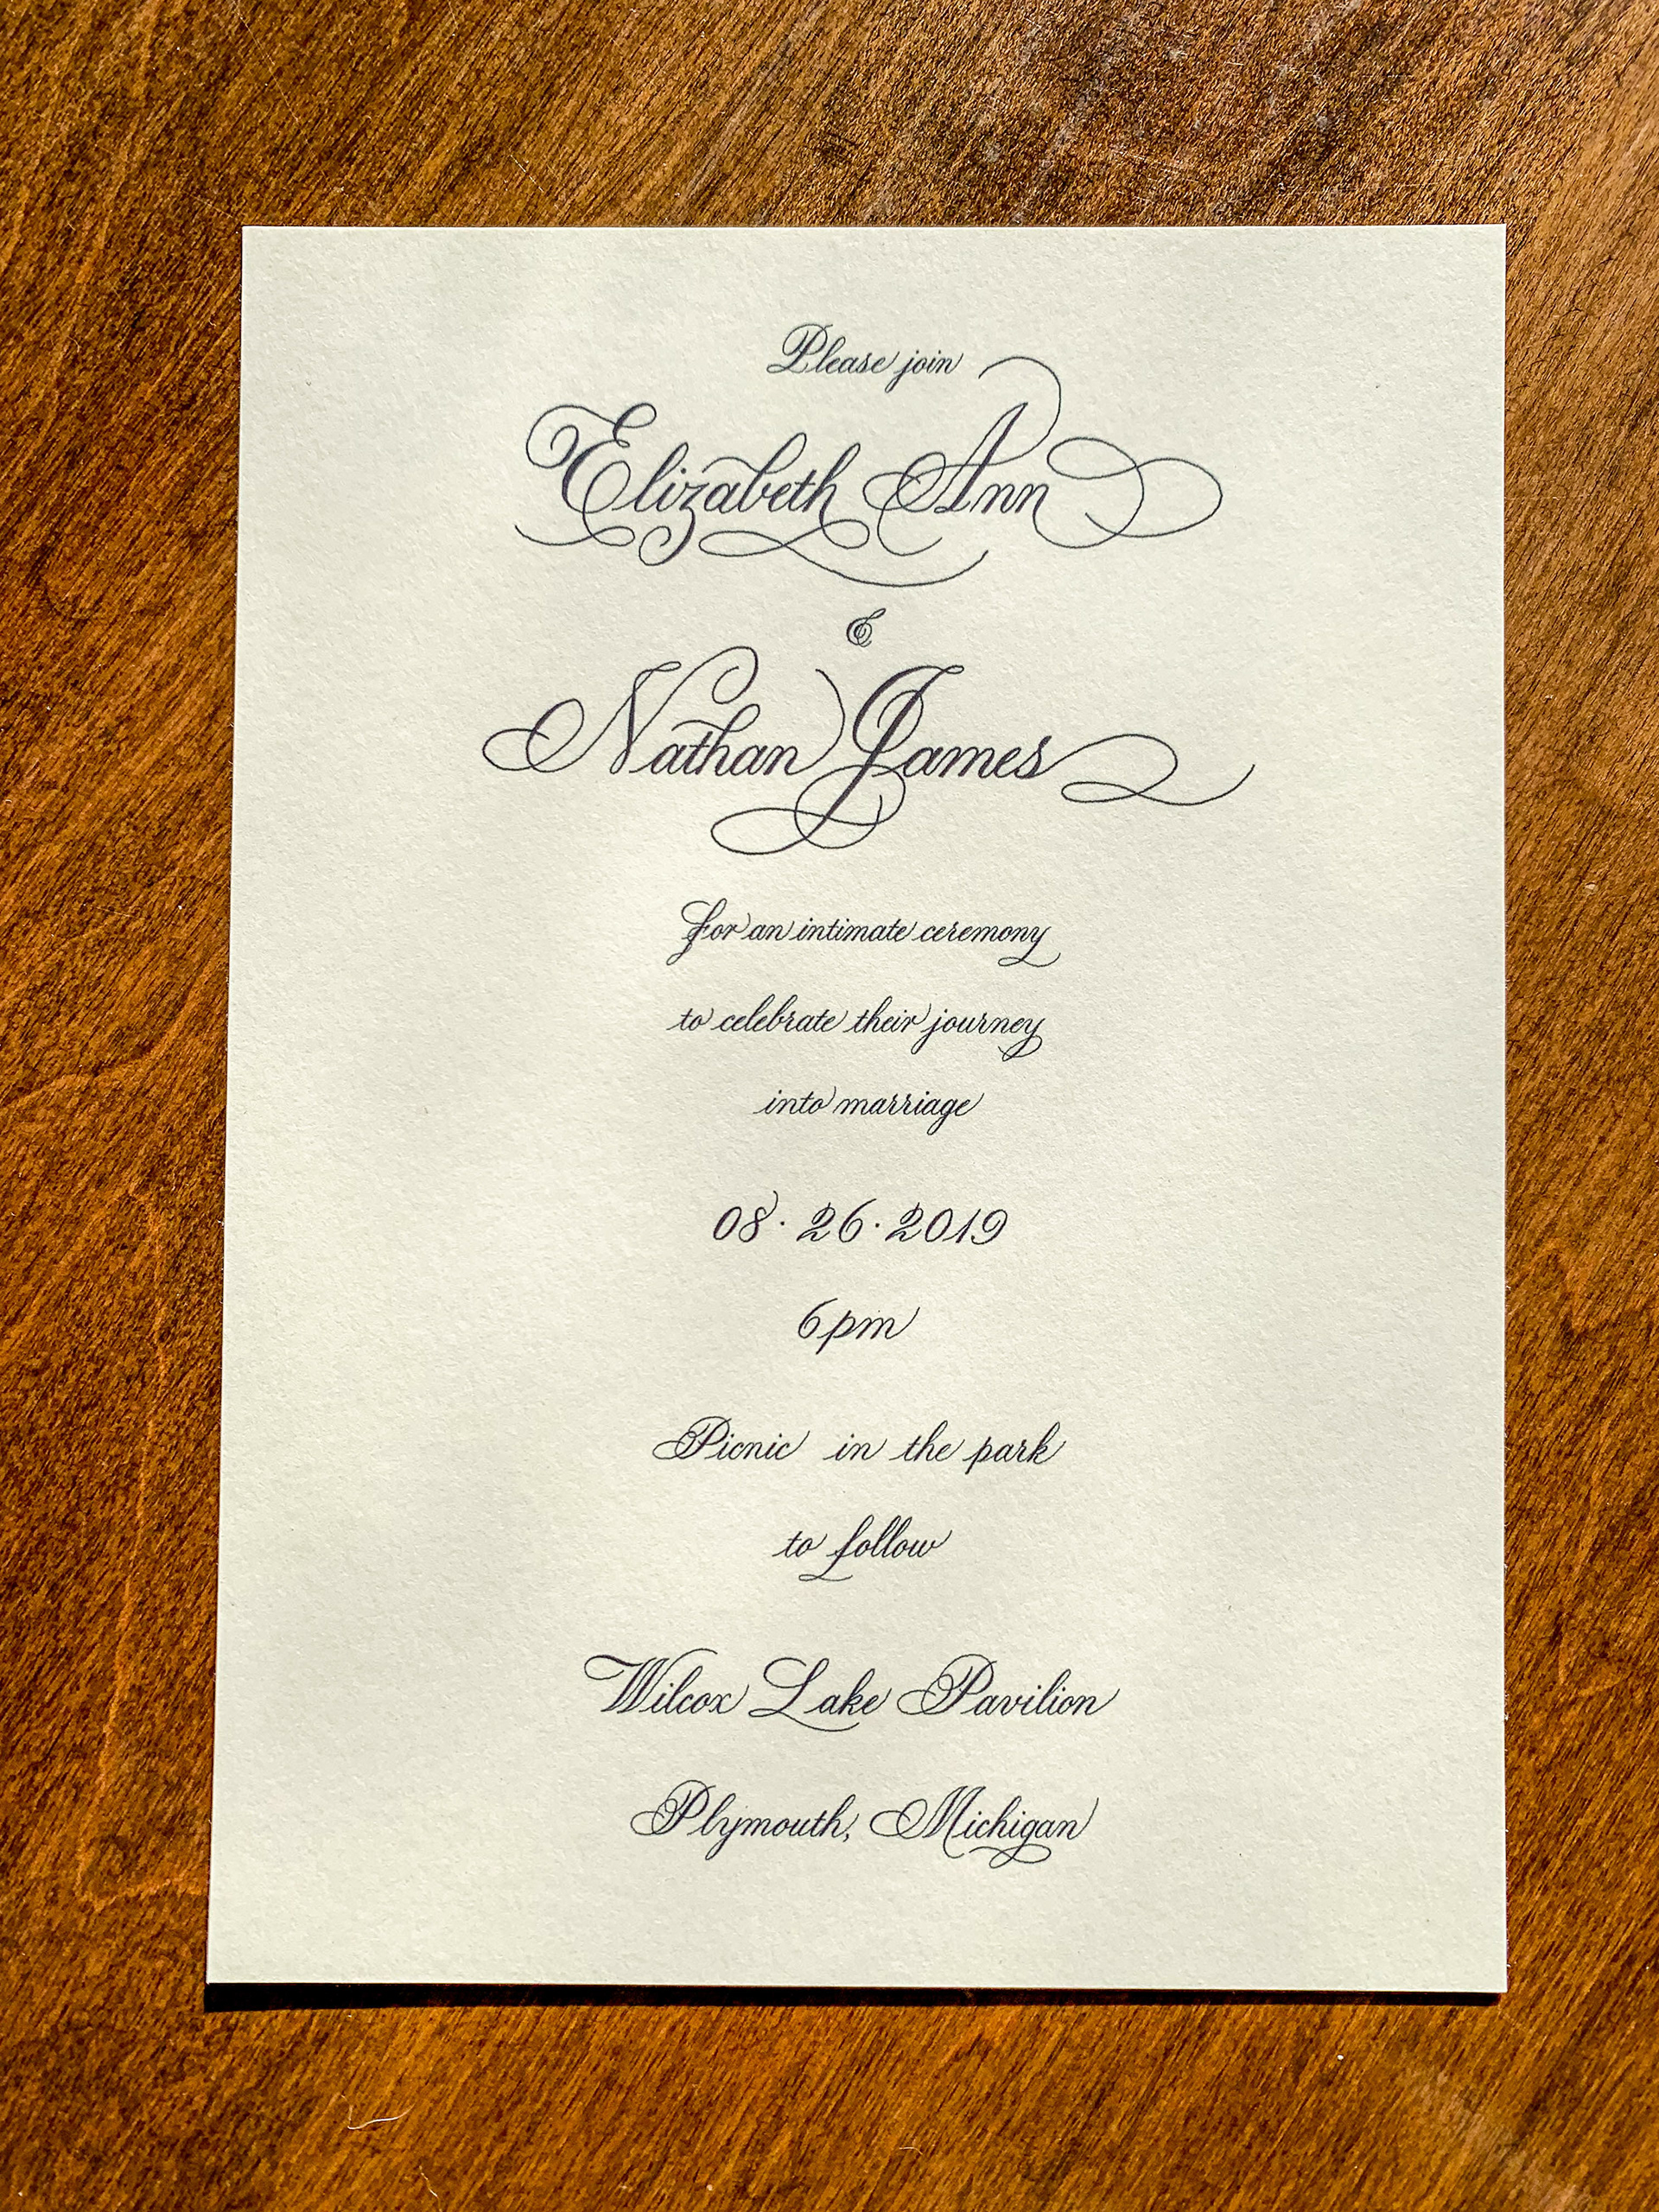 Please join
Elizabeth Ann
&
Nathan James
for an intimate ceremony
to celebrate their journey
into marriage
08·26·2019
6pm
Picnic in the park
to follow
Wilcox Lake Pavilion
Plymouth, Michigan